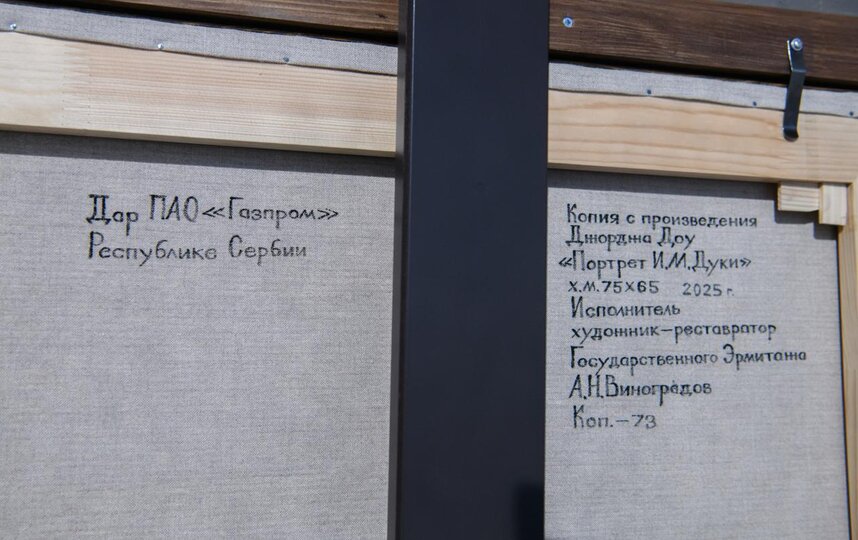 Дар ПАО «Газпром»
Республике Сербии
Копия с произведения
Джорджа Доу
«Портрет И.М.Дуки»
х.м.75х65 2025 г.
Исполнитель
художник-реставратор
Государственного Эрмитажа
А.Н.Виноградов
Коп.-73